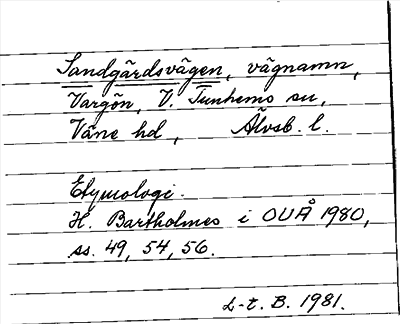 Sandgärdsvägen, vägnamn,
Vargön, V. Tunhems sn,
Väne hd, Älvsb. l.
Etymologi.
H. Bartholmes i OUÅ 1980,
ss. 49, 54, 56.
L-t. B. 1981.